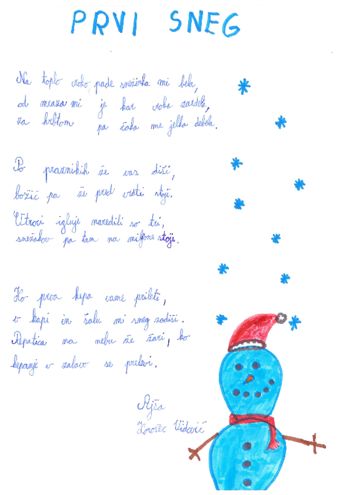 PRVI SNEG
Na toplo roko pade snežinka mi bela,
od mraza mi je kar roka zardela,
za hrbtom pa čaka me jelka debela.
Po praznikih že vas diši,
božič pa že pred vrati stoji.
Otroci igluje naredili so tri,
snežakov pa tam na miljone stoji.
Ko prva kepa vame prileti,
v kapi in šalu mi sneg sedi.
Repatica na nebu že žari, ko
kepanje v zabavo se prelevi.
Ajša
Vidovič